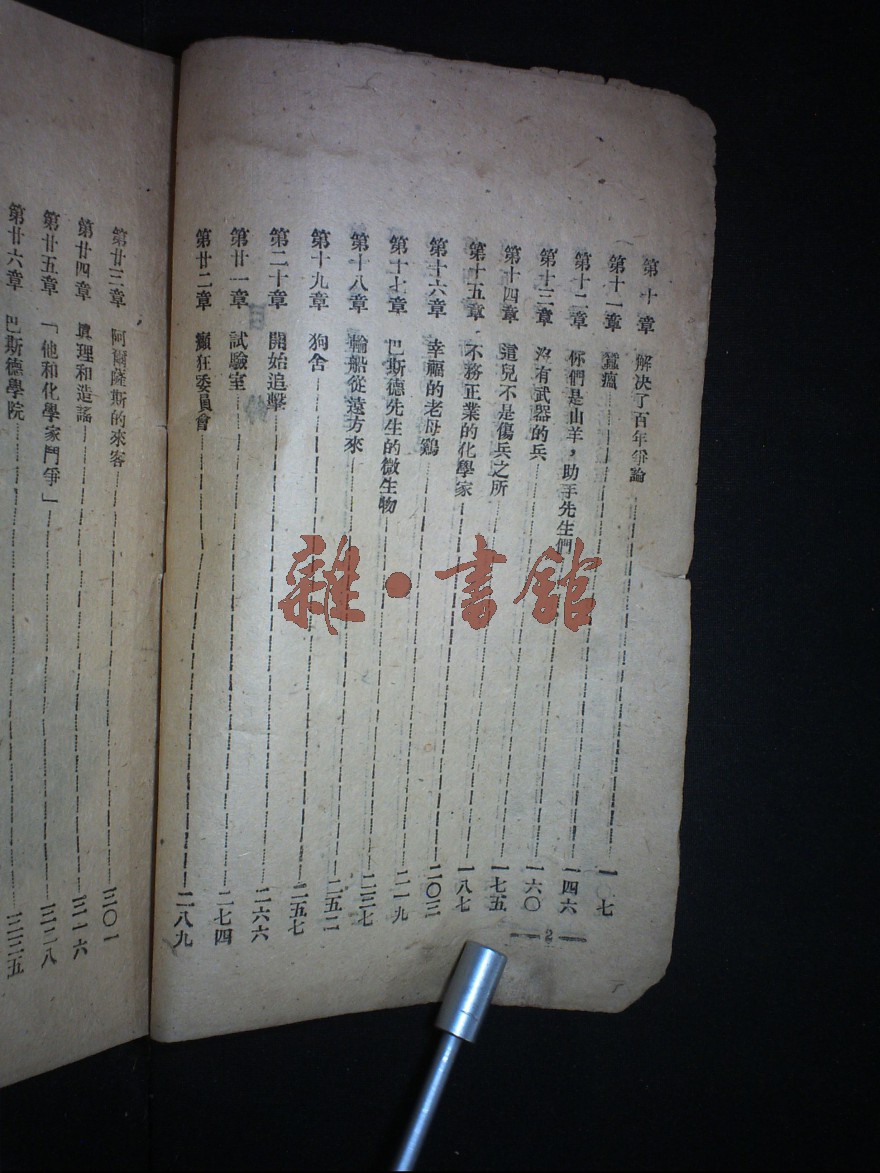 第十章 解決了百年爭論 一〇七
第十一章 蠶瘟 一四六
第十二章 你們是山羊，助手先生們 一六〇
第十三章 沒有武器的兵 一七五
第十四章 這兒不是傷兵之所 一八七
第十五章 不務正業的化學家 二〇三
第十六章 幸福的老母鷄 二一九
第十七章 巴斯德先生的微生物 二三七
第十八章 輪船從遠方來 二五二
第十九章 狗舍 二五七
第二十章 開始追擊 二六六
第廿一章 試驗室 二七四
第廿二章 癲狂委員會 二八九
2
第廿三章 阿爾薩斯的來客 三〇一
第廿四章 眞理和造謠 三一六
第廿五章 「他和化學家鬥爭」 三二八
第廿六章 巴斯德學院 三三五
雜·書館